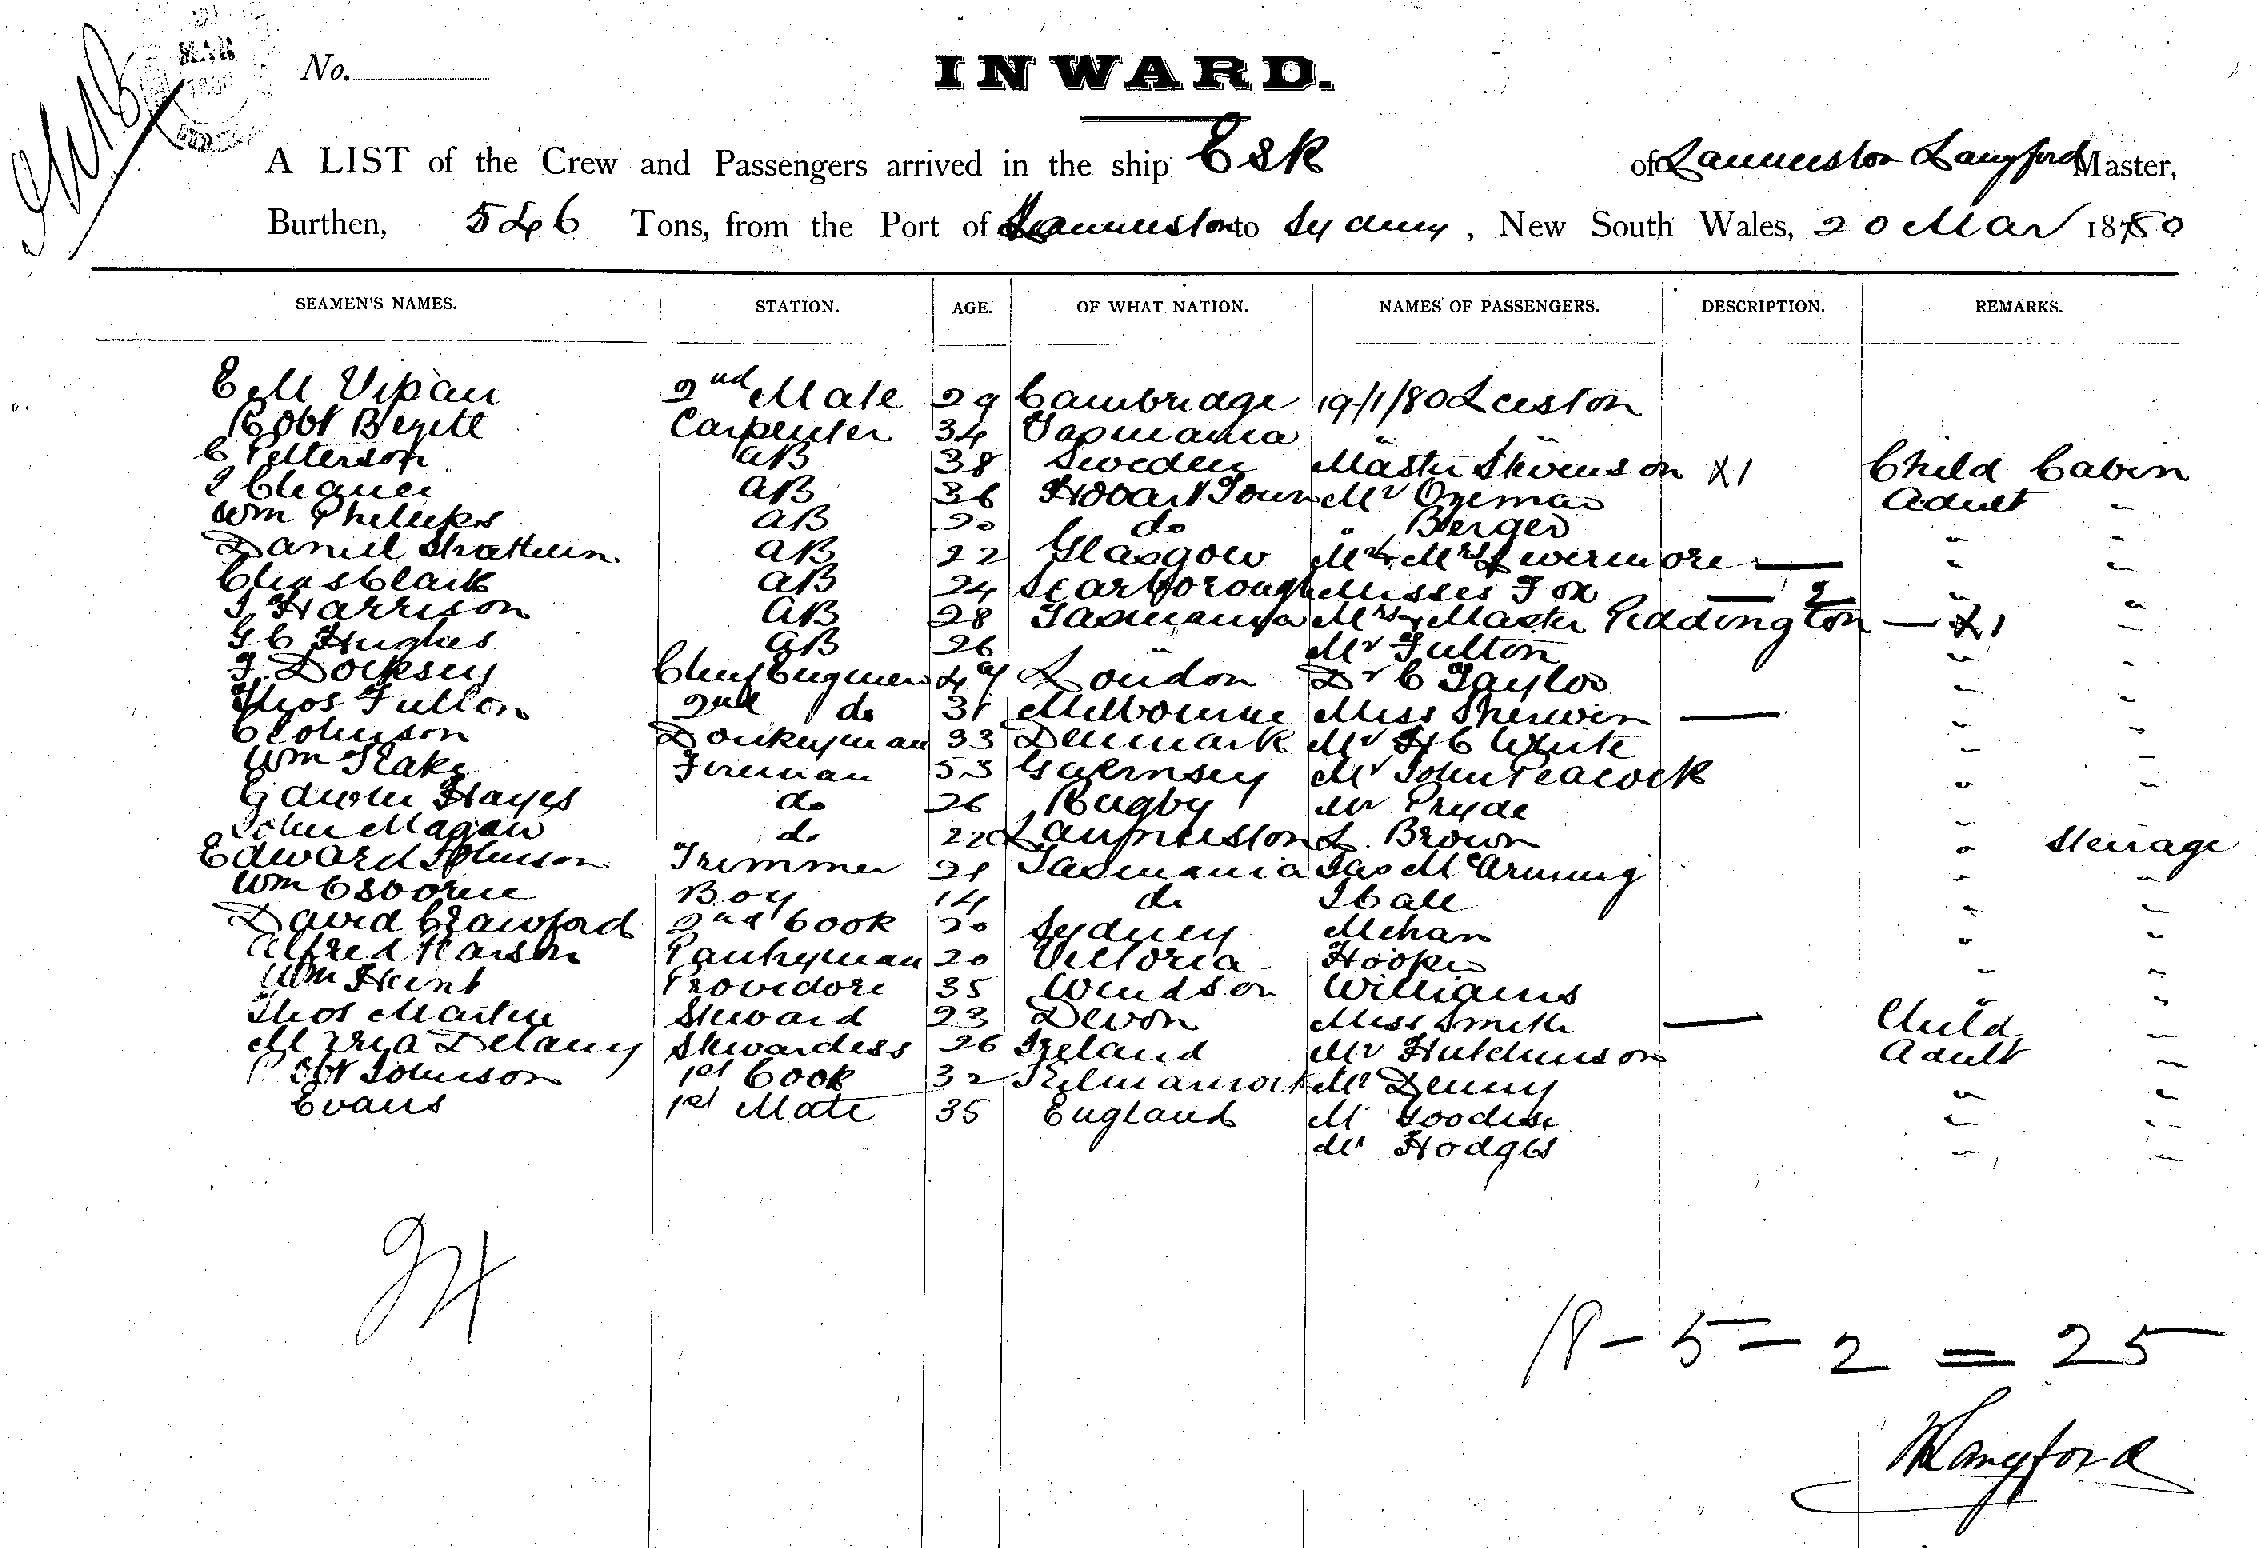 MAR
No.
INWARD.
A LIST of the Crew and Passengers arrived in the ship Esk of Launceston Langford Master,
Burthen, 546 Tons, from the Port of Launceston to Sydney, New South Wales, 20 Mar 1880
SEAMEN'S NAMES. STATION. AGE. OF WHAT NATION. NAMES OF PASSENGERS. DESCRIPTION. REMARKS.
E M Vipan 2nd Mate 29 Cambridge 19/1/80
Robt 34 Tasmania
Carpenter
C Petterson AB 38 Sweden Master Stevenson X1 Child Cabin
AB 36 Hobart Town Mr Adult "
Wm Phillips AB 20 do " Berger " "
Daniel AB 22 Glasgow Mr & Mrs Livermore — " "
Chas Clark AB 24 Scarborough Misses Fox — 2 " "
J Harrison AB 28 Tasmania Mrs & Master Peddington — X1 "
G C Hughes AB 26 " Mr Fulton " "
Chief Engineer 47 London Dr C Taylor " "
Thos Fulton 2nd do 31 Melbourne Miss Sherwin — " "
C Johnson Donkeyman 33 Denmark Mr H C White " "
Wm Fireman 53 Guernsey Mr John Peacock " "
Edwin Hayes do 26 Rugby Mr Pryde " "
John Magan do 22 Launceston L. Brown " Steerage
Edward Johnson Trimmer 21 Tasmania Jas " "
Wm Osborne Boy 14 do " "
David Crawford 2nd Cook 20 Sydney Mehan " "
Alfred Pantryman 20 Victoria " "
Wm Providore 35 Windsor Williams " "
Thos Martin Steward 23 Devon Miss Smith — Child "
Maria Delany Stewardess 26 Ireland Mr Hutchinson Adult "
Robt Johnson 1st Cook 32 Kilmarnock Mr Denny " "
Evans 1st Mate 35 England " "
Mr Hodges " "
24
18 - 5 - 2 = 25
Langford